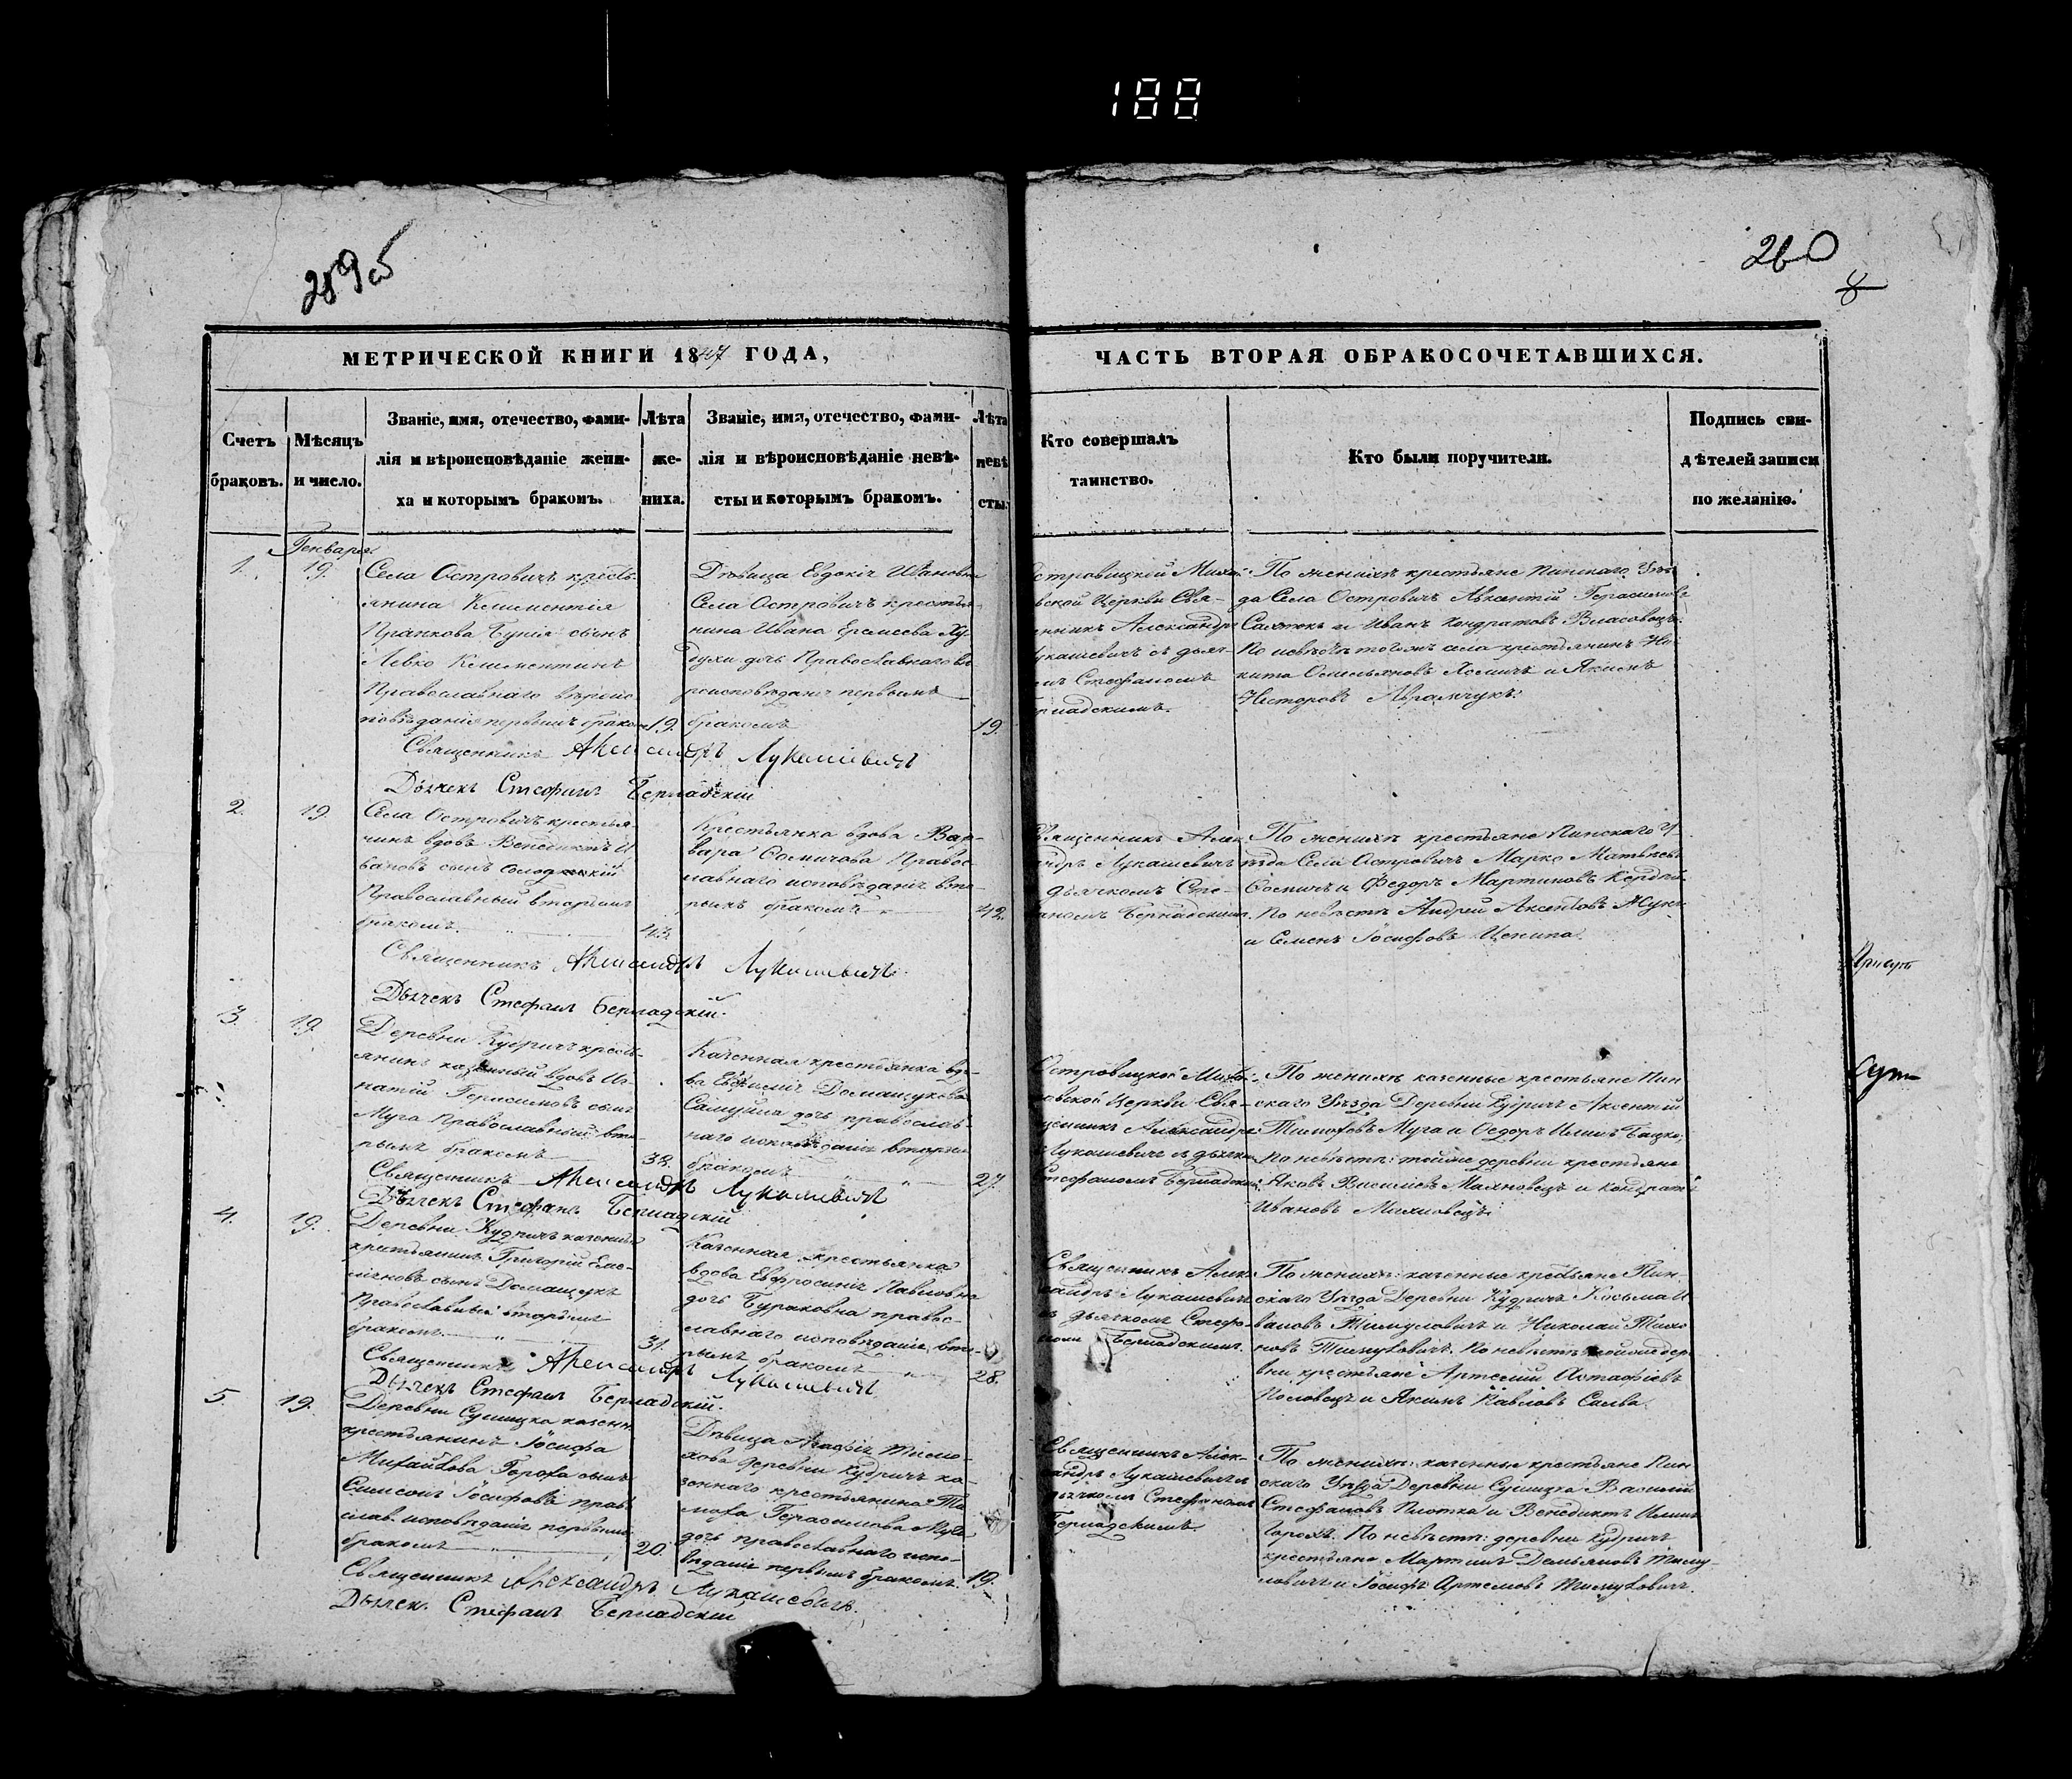 188
259об
260
8
МЕТРИЧЕСКОЙ КНИГИ 1847 ГОДА,
ЧАСТЬ ВТОРАЯ ОБРАКОСОЧЕТАВШИХСЯ.
Счетъ
браковъ.
Мѣсяцъ
и число.
Званіе, имя, отечество, фами-
лія и вѣроисповѣданіе жени-
ха и которымъ бракомъ.
Лѣта
же-
ниха.
Званіе, имя, отечество, фами-
лія и вѣроисповѣданіе невѣ-
сты и которымъ бракомъ.
Лѣта
невѣ
сты.
Кто совершалъ
таинство.
Кто были поручители.
Подпись сви-
дѣтелей записи
по желанію.
Генваря
1.
19.
Села Островичъ кресть-
янина Климентія
сынъ
Левко Климентинъ
Православнаго вѣроис-
повѣданія первымъ бракомъ
19.
Дѣвица Евдокія Ивановна
Села Островичъ крестья-
нина Ивана Еремеева Ху-
духи дочь Православнаго вѣ
роисповѣданія первымъ
бракомъ
19.
Островицкой Михай-
ловской Церкви Свя-
щенникъ Александръ
Лукашевичъ съ дьяч-
комъ Стефаномъ
Бернадскимъ.
По женихѣ крестьяне Пинскаго Уѣз-
да Села Островичъ Авксентій Герасимовъ
и Иванъ Кондратовъ Власовецъ.
По невѣстѣ тогожъ села крестьянинъ Ни-
кита Омельяновъ Хомичъ и Якимъ
Несторовъ Абрамчукъ.
Священникъ Александръ Лукашевичъ
Дьячекъ Стефанъ Бернадскій
2.
19.
Села Островичъ крестья-
нинъ вдовъ Венедиктъ И
вановъ сынъ
Православный вторымъ
бракомъ
43.
Крестьянка вдова Вар-
вара Православнаго исповѣданія вто-
рымъ бракомъ
42.
Священникъ Алек-
сандръ Лукашевичъ
съ дьячкомъ Сте-
фаномъ Бернадскимъ.
По женихѣ крестьяне Пинскаго У-
ѣзда Села Островичъ Марко Матвѣевъ
и Федоръ Мартиновъ
По невѣстѣ Андрей Аксентовъ Жукъ
и Семенъ Іосифовъ Цепипа.
Священникъ Александръ Лукашевичъ.
Дьячекъ Стефанъ Бернадскій.
3.
19.
Деревни Кудричъ кресть-
янинъ казенный вдовъ Иг-
натій Герасимовъ сынъ
Муха Православный вто-
рымъ бракомъ
32.
Казенная крестьянка вдо-
ва Евфимія Домащукова
Самуйла дочь православ-
наго исповѣданія вторымъ
бракомъ
27.
Островицкой Михай-
ловской Церкви Свя-
щенникъ Александръ
Лукашевичъ съ дьячком
Стефаномъ Бернадским
По женихѣ казенные крестьяне Пин
скаго Уѣзда Деревни Кудричъ Аксентій
Тимофѣевъ Муха и Федоръ Ильинъ Бацко,
По невѣстѣ: тойже деревни крестьяне
Яковъ Василіевъ Махновецъ и Кондратъ
Ивановъ Махновецъ.
Священникъ Александръ Лукашевичъ
Дьячекъ Стефанъ Бернадскій
4.
19.
Деревни Кудричъ казенный
крестьянинъ Григорій Еме-
ляновъ сынъ Домащукъ
Православный вторымъ
бракомъ
31.
Казенная крестьянка
вдова Евфросинія Павловна
дочь Бураковна правос-
лавнаго исповѣданія вто-
рымъ бракомъ
28.
Священникъ Алек-
сандръ Лукашевичъ
съ дьячкомъ Стефа-
номъ Бернадскимъ.
По женихѣ: казенные крестьяне Пин-
скаго Уѣзда Деревни Кудричъ Косьма И
вановъ Тимуловичъ и Николай
По невѣстѣ тойже дер
вни крестьяне Артемій Астафіевъ
Половецъ и Якимъ Павловъ Салва.
Священникъ Александръ Лукашевичъ
Дьячекъ Стефанъ Бернадскій.
5.
19.
Деревни Сушицка казен.
крестьянинъ Іосифа
Михайлова Гороха сынъ
Симеонъ Іосифовъ право
слав. исповѣданія первымъ
бракомъ
20.
Дѣвица Агафія Тимо-
хова деревни Кудричъ ка-
зеннаго крестьянина Ти
моха Герасимова Мухи
дочь православнаго испо-
вѣданія первымъ бракомъ.
19.
Священникъ Алек-
сандръ Лукашевичъ съ
дьячкомъ Стефаномъ
Бернадскимъ.
По женихѣ: казенные крестьяне Пин
скаго Уѣзда Деревни Сушицка Василій
Стефановъ Плотка и Венедиктъ Ильинъ
Горохъ. По невѣстѣ: деревни Кудричъ
крестьяне Мартинъ Демьяновъ Тиму-
ловичъ и Іосифъ Артемовъ Тимуловичъ.
Священникъ Александръ Лукашевичъ.
Дьячек. Стефанъ Бернадскій